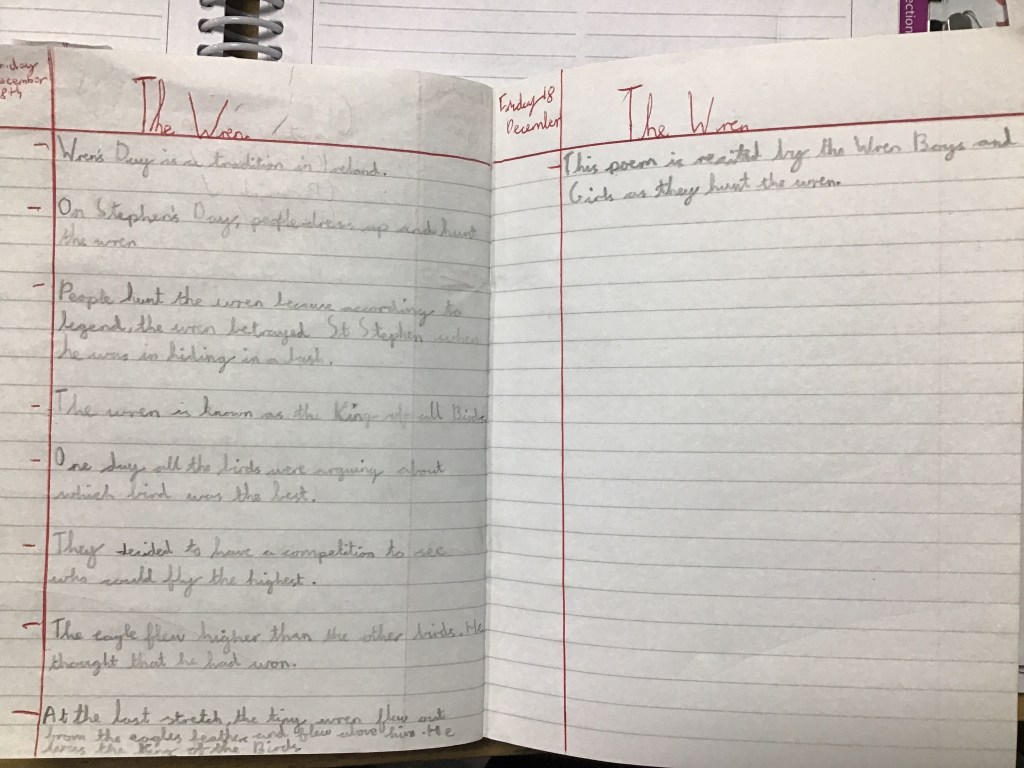 Friday
December
18th
The Wren
- Wren's Day is a tradition in Ireland.
- On Stephen's Day, people dress up and hunt
the wren
- People hunt the wren because according to
legend, the wren betrayed St Stephen when
he was in hiding in a bush.
- The wren is known as the King of all Birds
- One day all the birds were arguing about
which bird was the best.
- They decided to have a competition to see
who could fly the highest.
- The eagle flew higher than the other birds. He
thought that he had won.
- At the last stretch, the tiny wren flew out
from the eagles feather and flew above him. He
was the King of the Birds
Friday 18
December
The Wren
- This poem is recited by the Wren Boys and
Girls as they hunt the wren.
ection